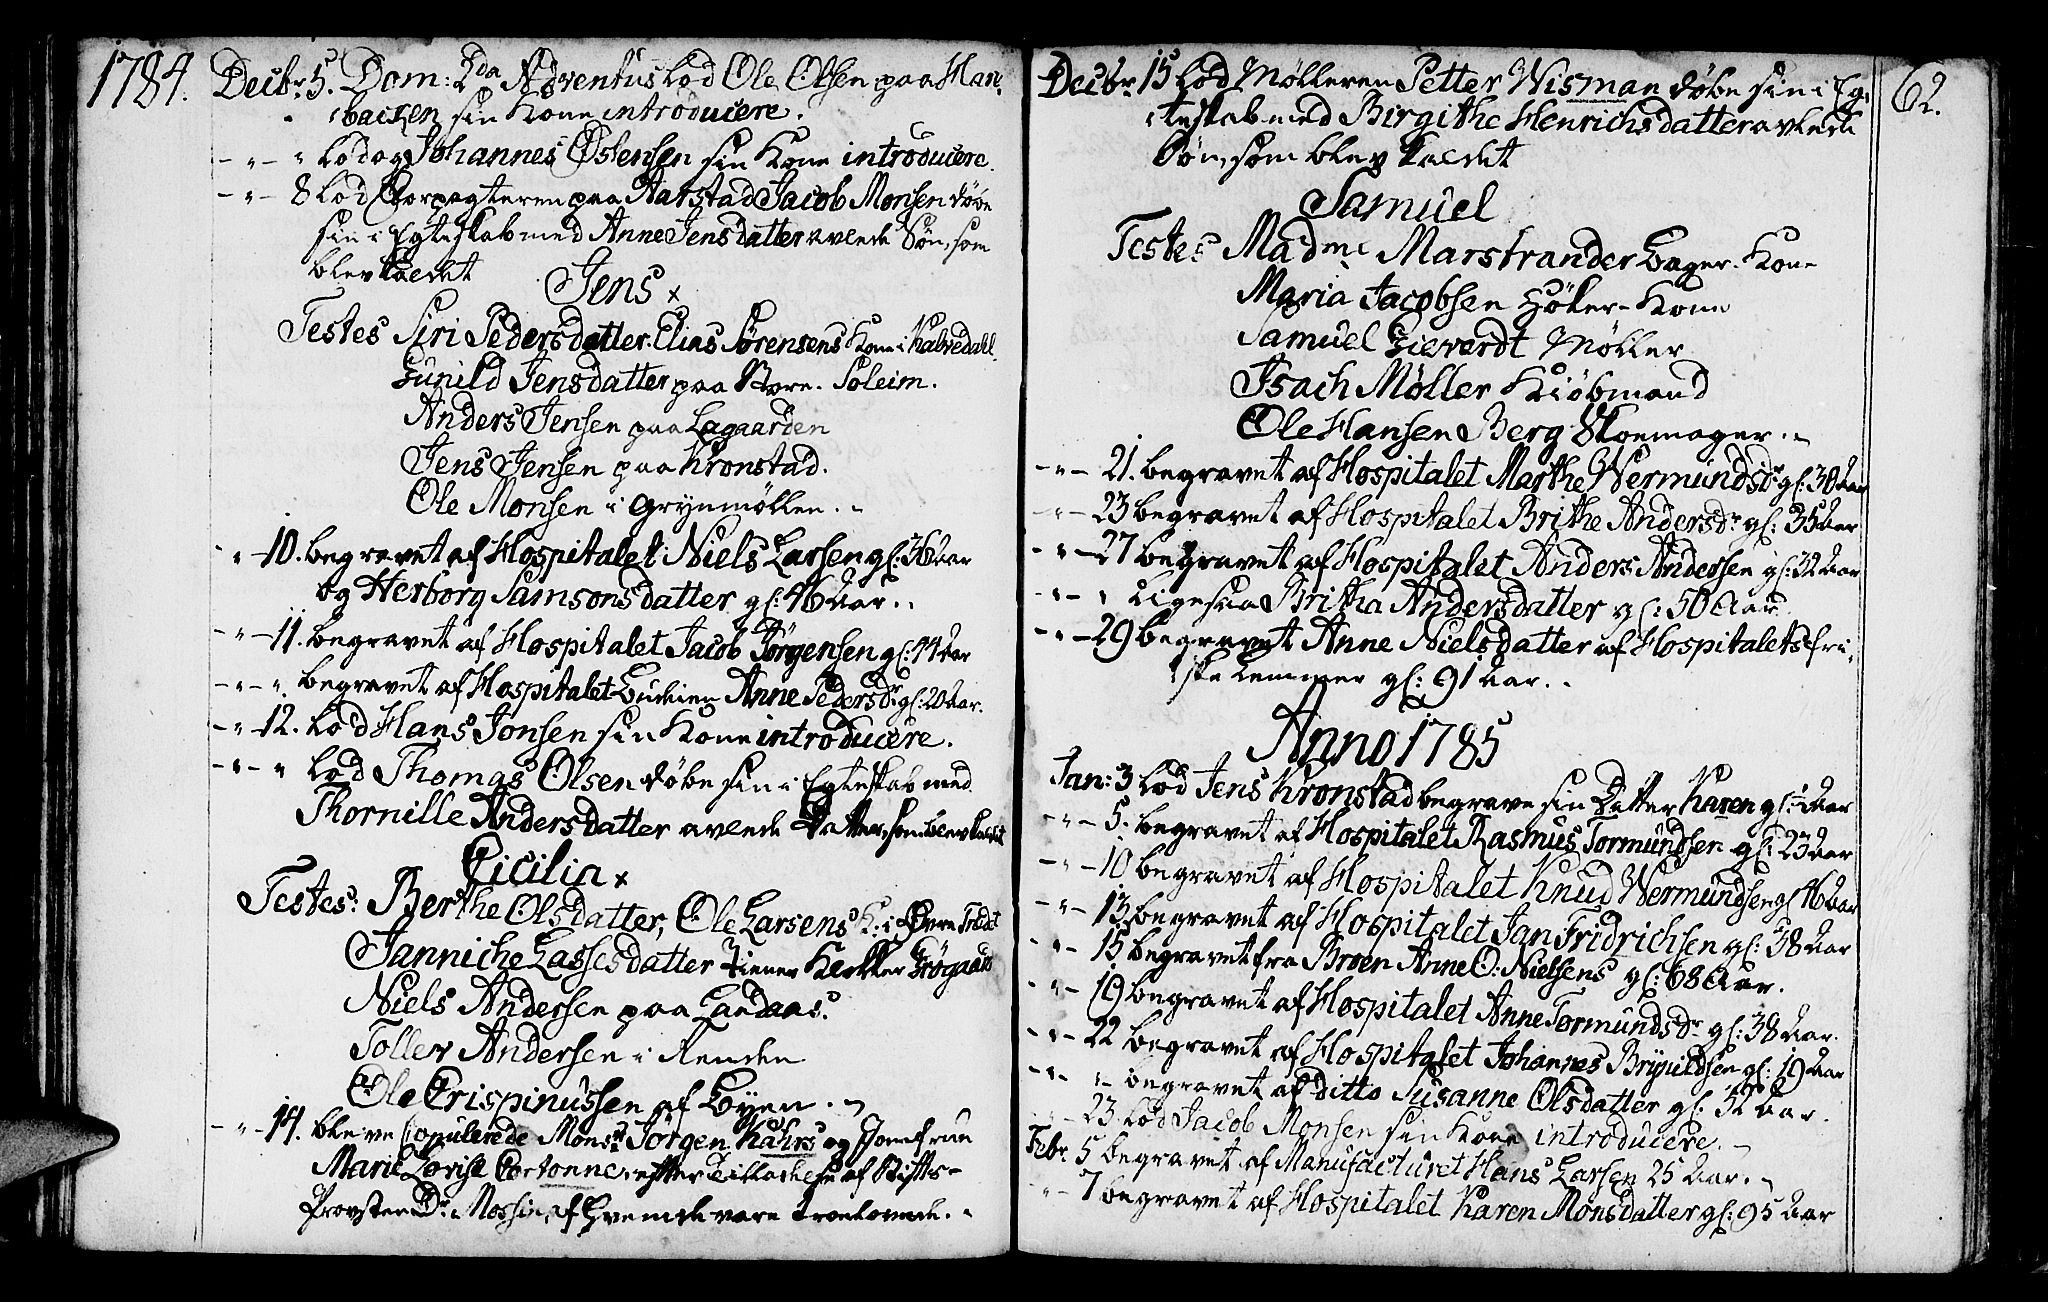 1784.
Decbr 5. Dom: 2da Adventus lod Ole Olsen paa Han-
backen sin Kone introducere.
- " - " lod og Johannes Østensen sin Kone introducere
- " - 8 lod Forpagteren paa Aarstad Jacob Monsen døbe
sin i Egteskab med Anne Jensdatter avlede Søn, som
blev kaldet
Jens x
Testes Siri Pedersdatter. Elias Sørensens Kone i Kalvedahl.
Gunild Jensdatter paa Store-Soleim.
Anders Jensen paa Lagaarden
Jens Jensen paa Kronstad.
Ole Monsen i Grynmøllen. -
" - 10. begravet af Hospitalet Niels Larsen gl: 36 Aar
og Herborg Samsonsdatter gl: 46 Aar. .
- " - 11. begravet af Hospitalet Jacob Jørgensen gl: 44 Aar
- " - ". begravet af Hospitalet Anne Pedersdr gl: 20 Aar.
- " - 12. lod Hans Jonsen sin Kone introducere.
- " - " lod Thomas Olsen døbe sin i Egteskab med
Thornille Andersdatter avlede Datter, som blev kaldet
Cicilia x
Testes: Berthe Olsdatter, Ole Larsens K: i Øvre
Janniche Lassesdatter tiener
Niels Andersen paa Landaas.
Toller Andersen i Renden
Ole Crispinussen af Byen. -
- " - 14. bleve Copulerede Monsr Jørgen Kahrs og Jomfrue
Marie Lovise Cortonne, efter Tilladelse af Stifts-
Provsten Dr. af Hvem de vare troelovede. .
62.
Decbr 15 lod Mølleren Petter Wisman døbe sin i Eg-
teskab med Birgithe Henrichsdatter avlede
Søn, som blev kaldet
Samuel
Testes Madme Marstrander Bager-Kone
Maria Jacobsen Høker-Kone
Samuel Gieverdt Møller
Isach Møller Kiøbmand
Ole Hansen Berg Skoemager. -
- " - 21. begravet af Hospitalet Marthe Wermundsdr gl: 30 Aar
- " - 23 begravet af Hospitalet Brithe Andersdr gl: 35 Aar
- " - 27 begravet af Hospitalet Anders Andersen gl: 32 Aar
- " - " Ligesaa Britha Andersdatter gl: 50 Aar.
- " - 29 begravet Anne Nielsdatter af Hospitalets fri-
ske Lemmer gl: 91 Aar. .
Anno 1785
Jan: 3 lod Jens Kronstad begrave sin Datter Karen gl: ½ Aar
- " - 5. begravet af Hospitalet Rasmus Tormundsen gl: 23 Aar
- " - 10 begravet af Hospitalet Knud Wermundsen gl 46 Aar
- " - 13 begravet af Hospitalet Jan Fridrichsen gl: 38 Aar
- " - 15 begravet fra Broen Anne O: Nielsens gl: 68 Aar.
- " - 19 begravet af Hospitalet Anne Tormundsdr gl: 38 Aar.
- " - 22 begravet af Hospitalet Johannes Brynildsen gl: 19 Aar
- " - " begravet af Ditto Susanne Olsdatter gl: 52 Aar.
" - 23. lod Jacob Monsen sin Kone introducere. -
Febr 5 begravet af Manufacturet Hans Larsen 25 Aar. -
- " - 7 begravet af Hospitalet Karen Monsdatter gl: 95 Aar